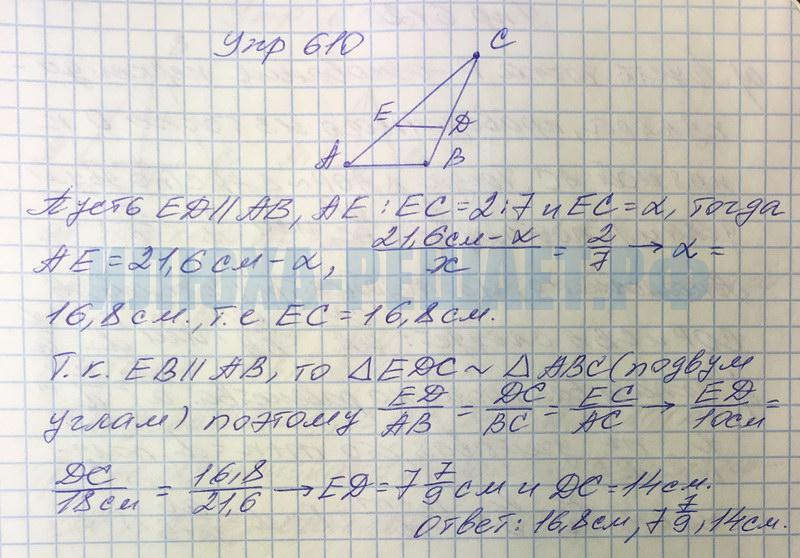 Упр 610
C
E
D
A
B
Пусть ED || AB, AE : EC = 2 : 7 и EC = x, тогда
AE = 21,6 см - x, (21,6 см - x)/x = 2/7 → x =
16,8 см., т.е EC = 16,8 см.
Т.к. EB || AB, то △EDC ~ △ABC (по двум
углам) поэтому ED/AB = DC/BC = EC/AC → ED/10см =
DC/18см = 16,8/21,6 → ED = 7 7/9 см и DC = 14 см.
Ответ: 16,8 см, 7 7/9, 14 см.
ИЛЮХА-РЕШАЕТ.РФ